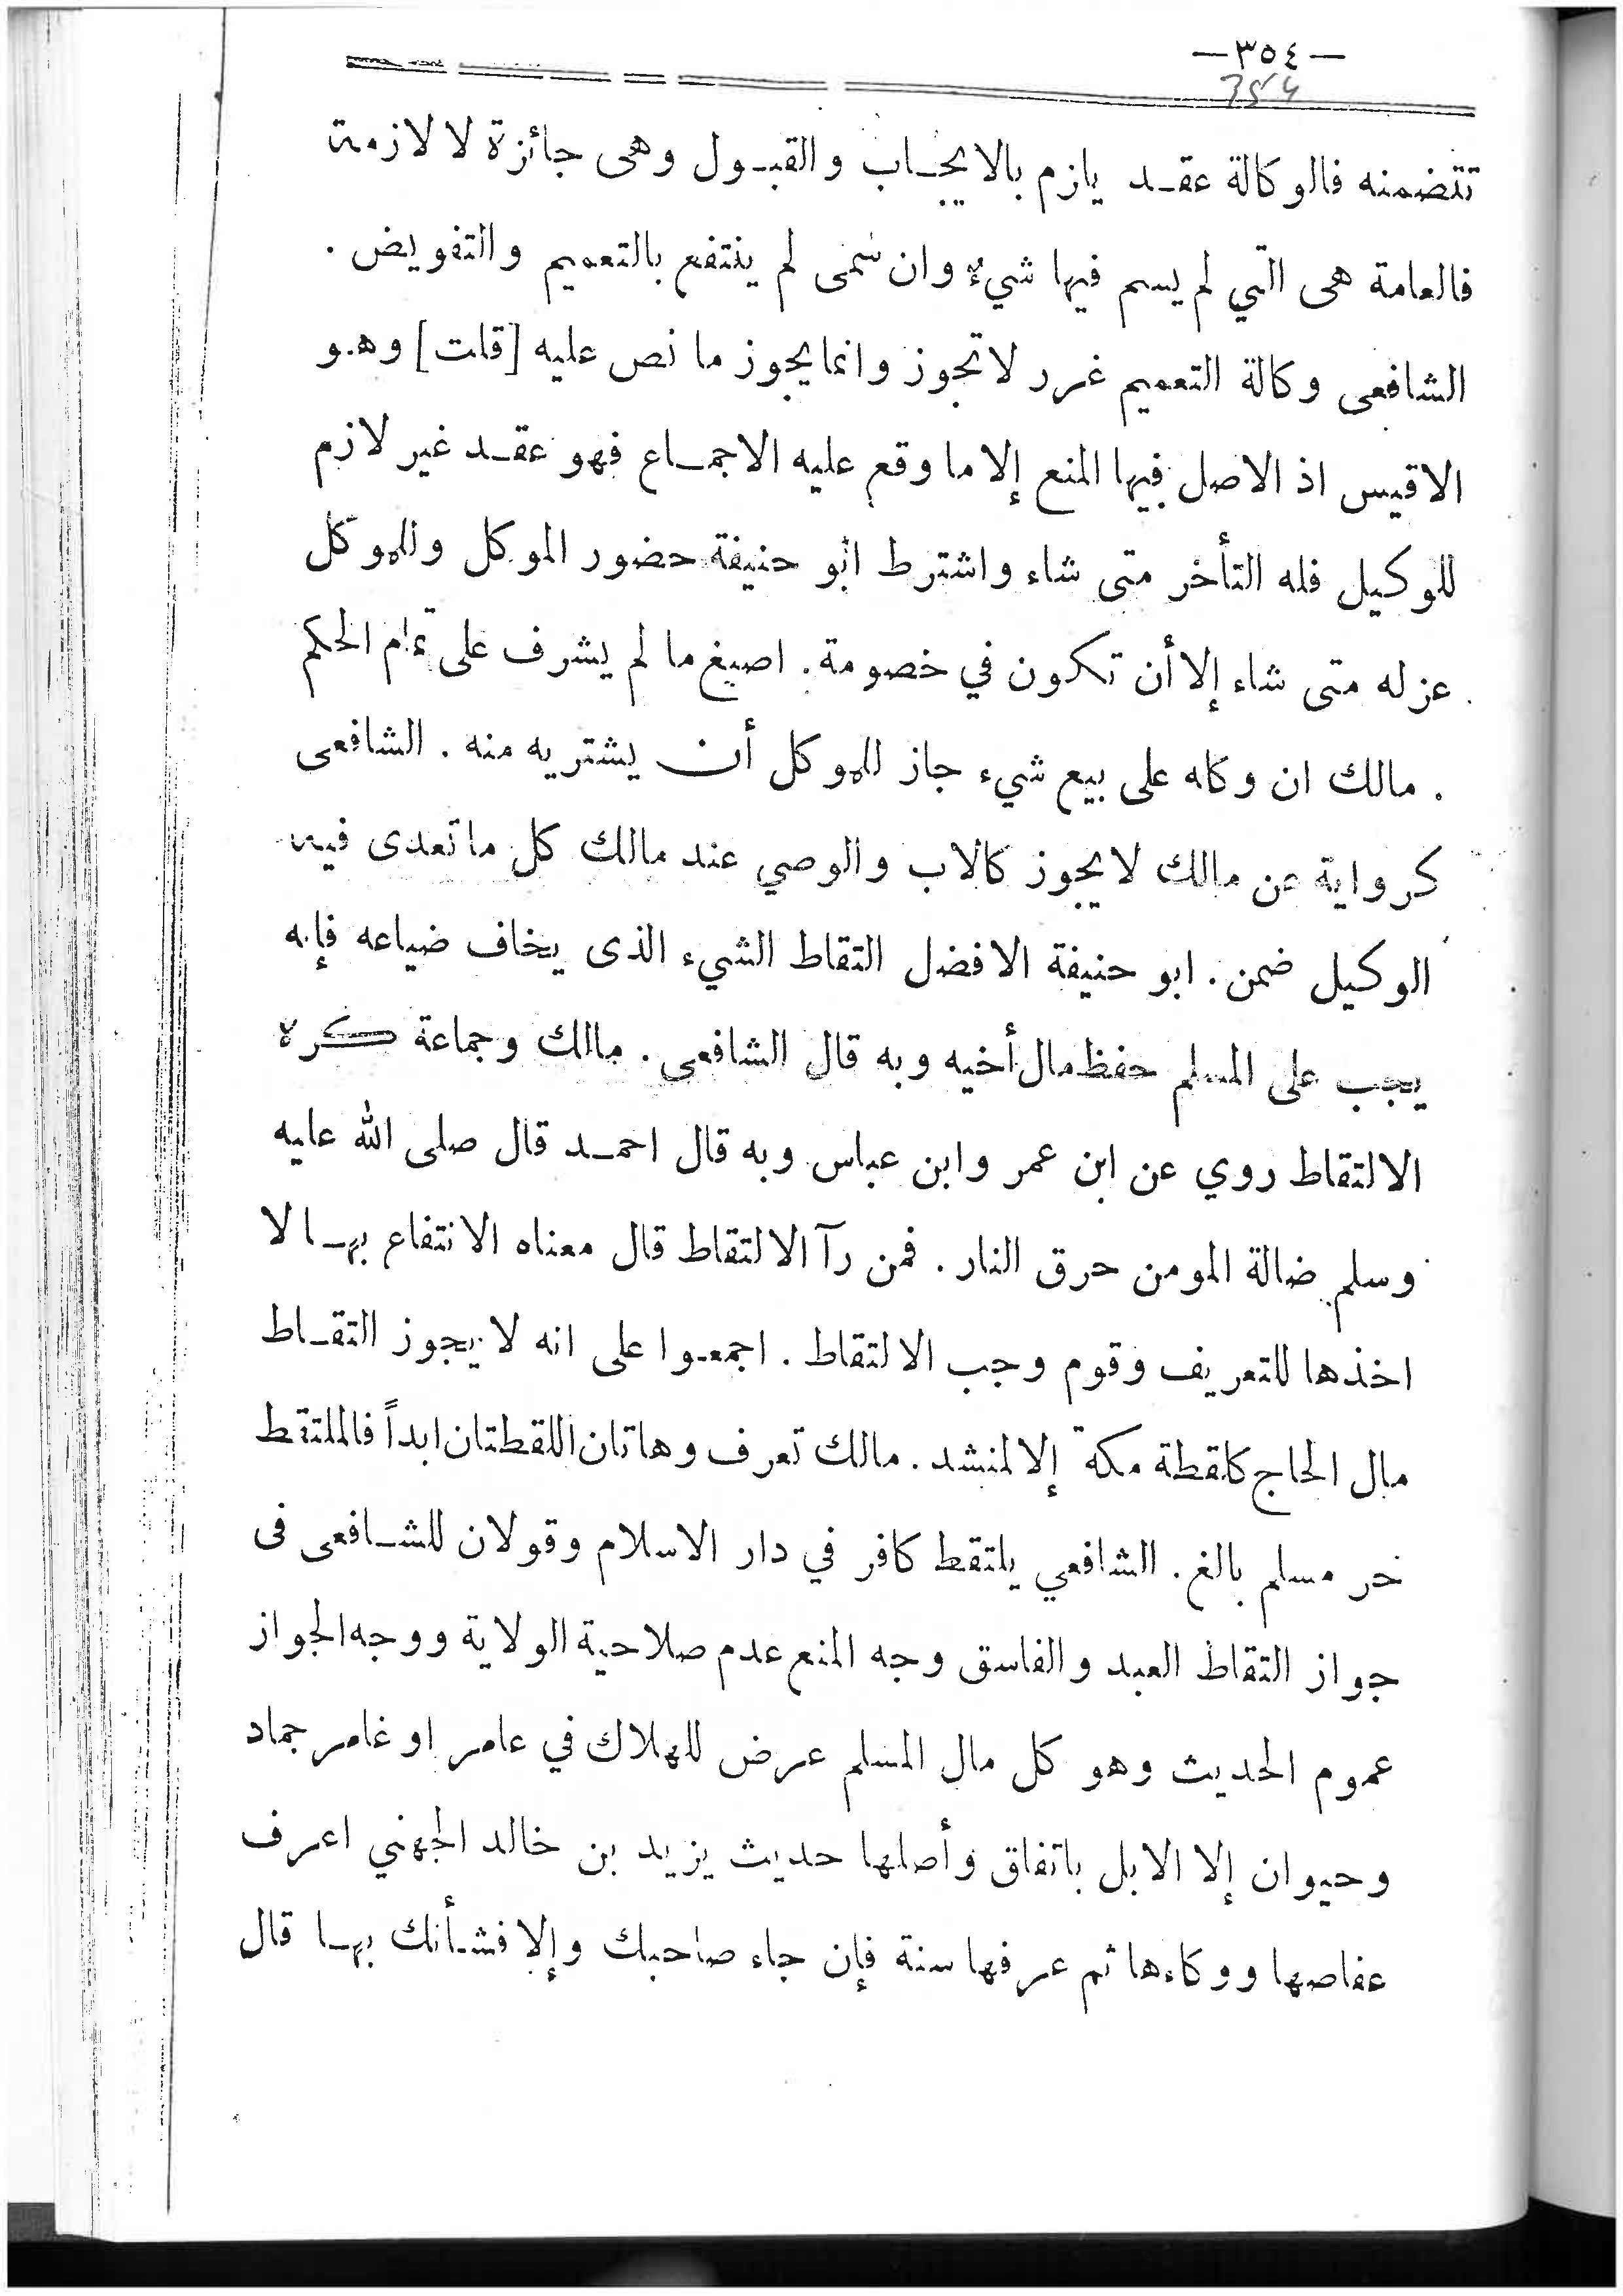 —٣٥٤—
354
تتضمنه فالوكالة عقد يلزم بالايجاب والقبول وهى جائزة لا لازمة
فالعامة هى التي لم يسم فيها شيء وان سمى لم ينتفع بالتعميم والتفويض .
الشافعى وكالة التعميم غرر لا تجوز وانما يجوز ما نص عليه [قلت] وهو
الاقيس اذ الاصل فيها المنع إلا ما وقع عليه الاجماع فهو عقد غير لازم
للوكيل فله التأخر متى شاء واشترط ابو حنيفة حضور الموكل وللموكل
عزله متى شاء إلا أن تكون في خصومة . اصبغ ما لم يشرف على تمام الحكم
. مالك ان وكله على بيع شيء جاز للموكل أن يشتريه منه . الشافعى
كرواية عن مالك لا يجوز كالاب والوصي عند مالك كل ما تعدى فيه
الوكيل ضمن . ابو حنيفة الافضل التقاط الشيء الذى يخاف ضياعه فإنه
يجب على المسلم حفظ مال أخيه وبه قال الشافعى . مالك وجماعة كره
الالتقاط روي عن ابن عمر وابن عباس وبه قال احمد قال صلى الله عليه
وسلم ضالة المومن حرق النار . فمن رآ الالتقاط قال معناه الانتفاع بها لا
اخذها للتعريف وقوم وجب الالتقاط . اجمعوا على انه لا يجوز التقاط
مال الحاج كلقطة مكة إلا لمنشد . مالك تعرف وهاتان اللقطتان ابداً فالملتقط
حر مسلم بالغ . الشافعي يلتقط كافر في دار الاسلام وقولان للشافعى فى
جواز التقاط العبد والفاسق وجه المنع عدم صلاحية الولاية ووجه الجواز
عموم الحديث وهو كل مال المسلم عرض للهلاك في عامر او غامر جماد
وحيوان إلا الابل باتفاق وأصلها حديث يزيد بن خالد الجهني اعرف
عفاصها ووكاءها ثم عرفها سنة فإن جاء صاحبك وإلا فشأنك بها قال